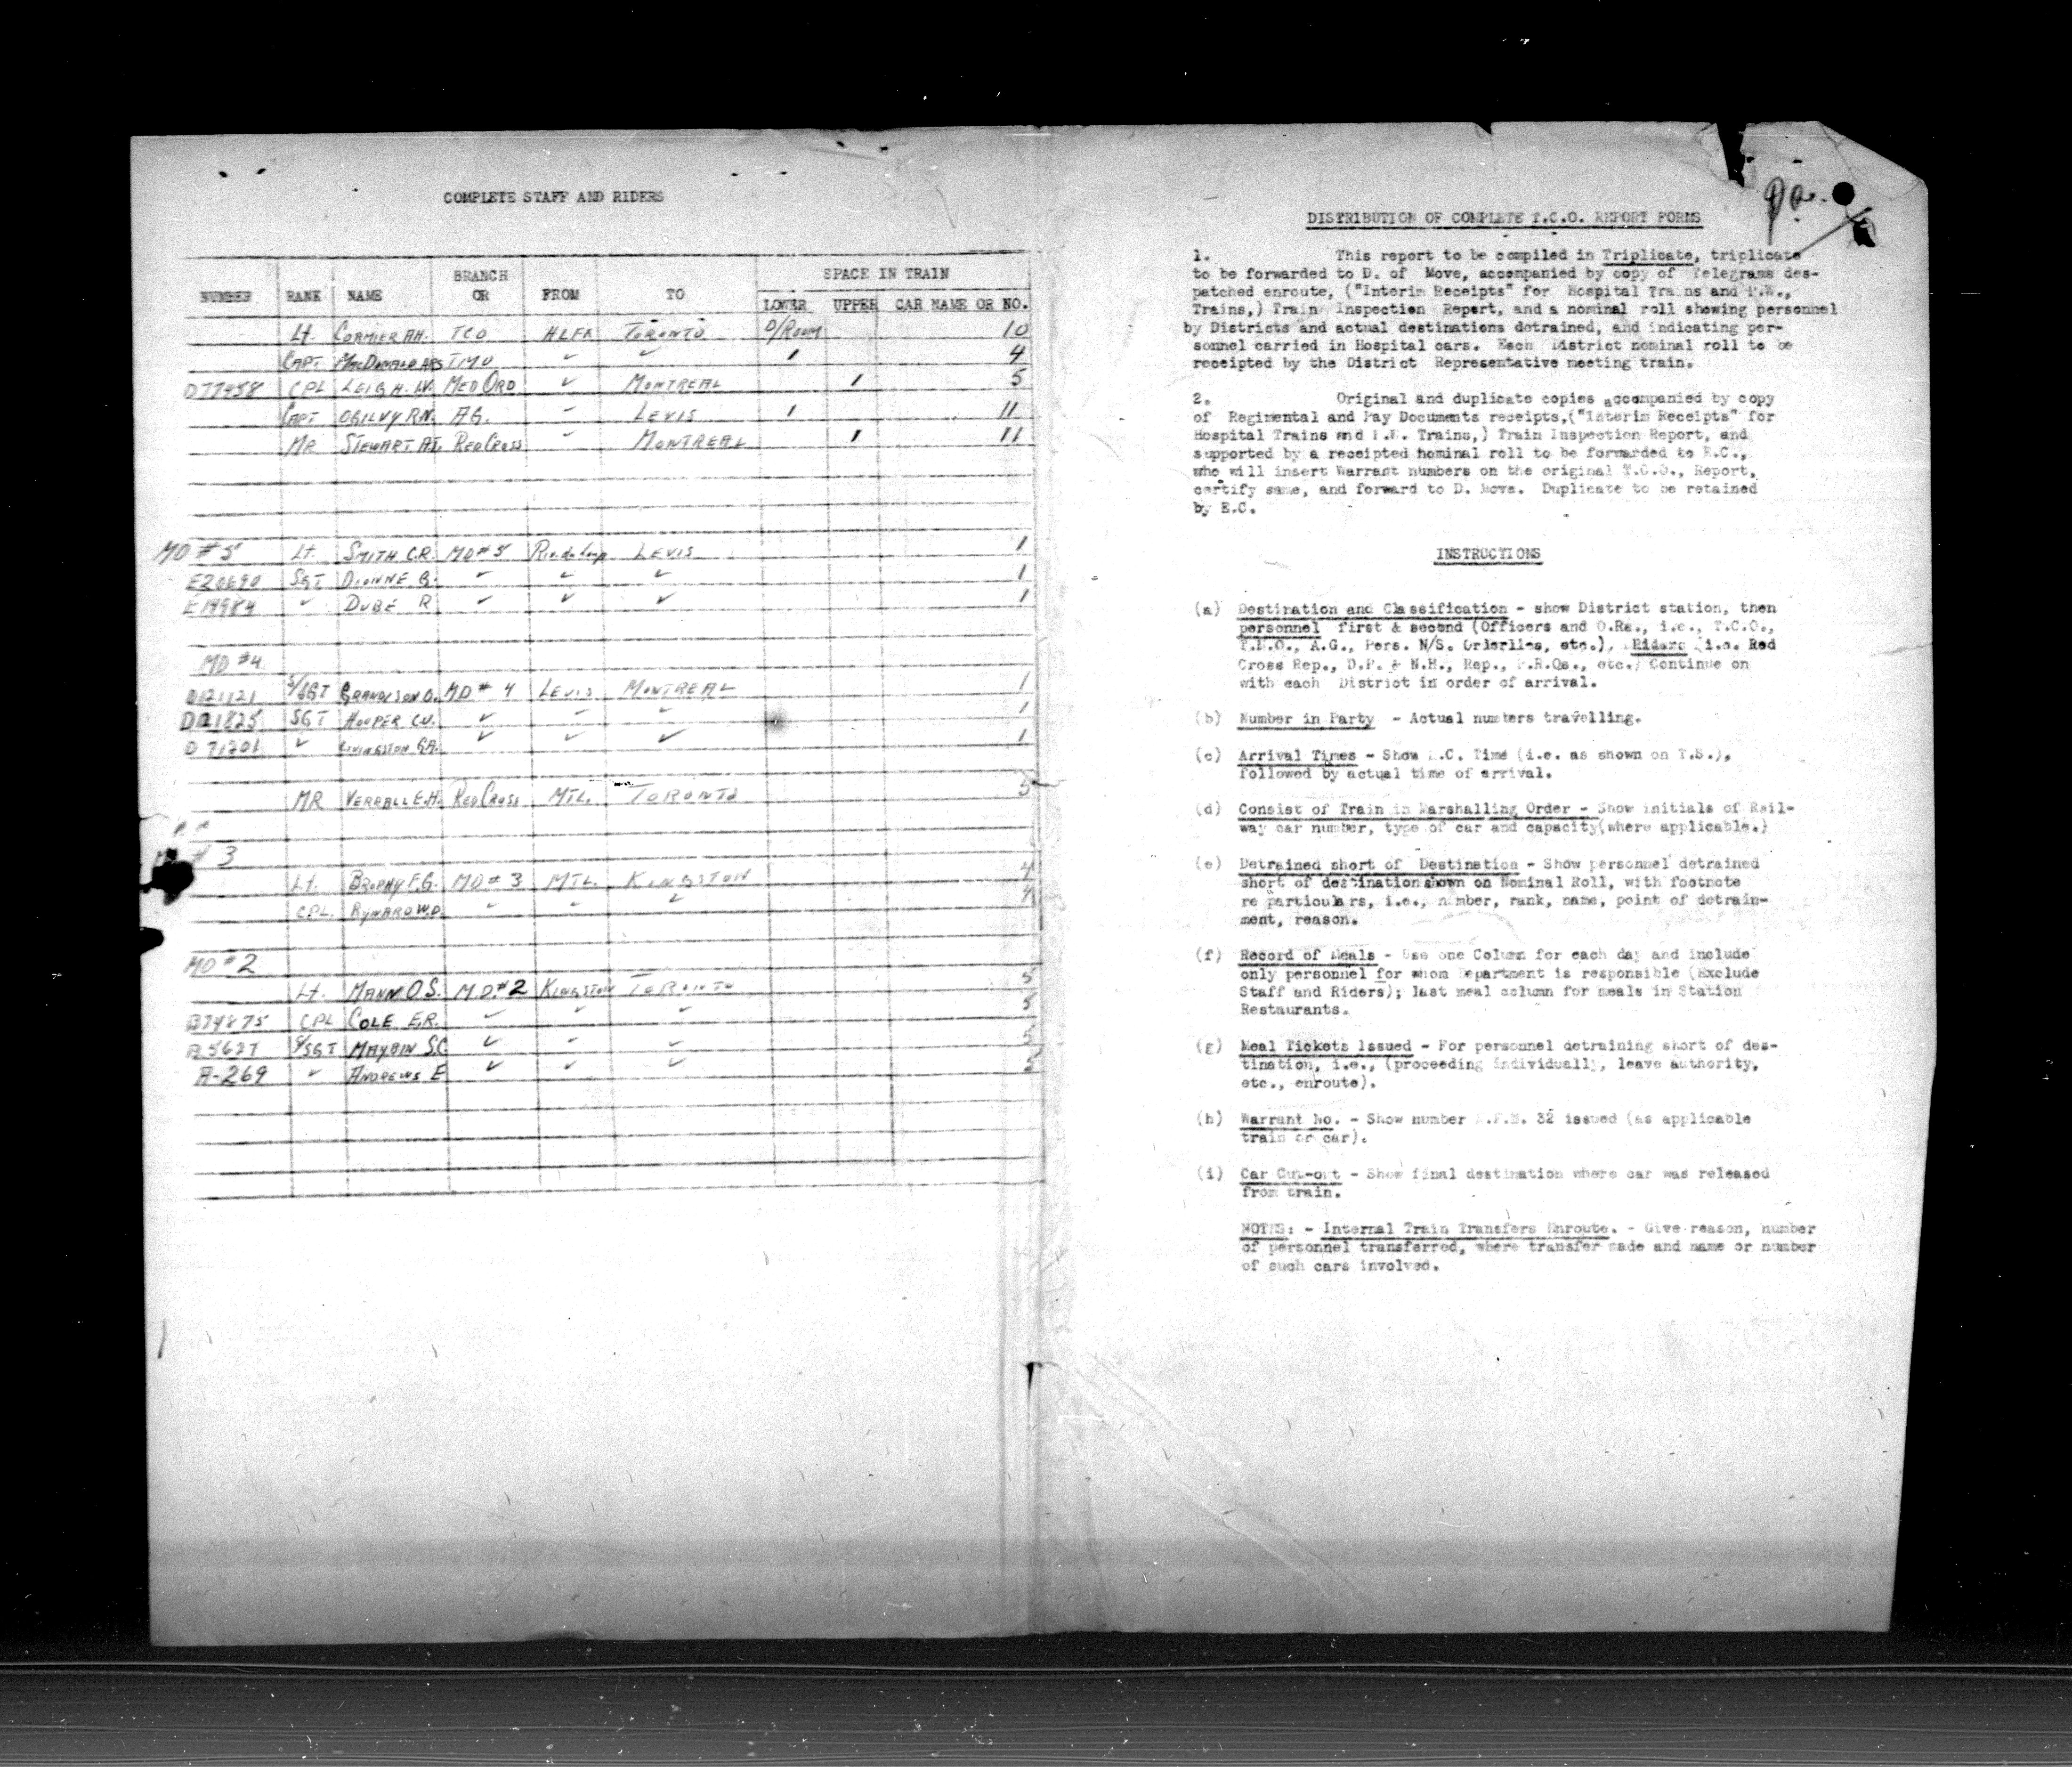 COMPLETE STAFF AND RIDERS
NUMBER RANK NAME BRANCH OR FROM TO SPACE IN TRAIN
LOWER UPPER CAR NAME OR NO.
Lt. CORMIER A.H. TCO HLFX TORONTO D/ROOM 10
CAPT MACDONALD TMO ✓ ✓ 1 4
D77458 CPL LEIGH. W. MED ORD ✓ MONTREAL 1 5
CAPT OGILVY R.N. A.G. - LEVIS 1 11
MR STEWART A.I. RED CROSS - MONTREAL 1 11
MD #5 Lt. SMITH C.R. MD #5 LEVIS 1
E20690 SGT DIONNE G. ✓ ✓ ✓ 1
✓ DUBÉ R ✓ ✓ ✓ 1
MD #4
S/SGT GRANDISON D. MD #4 LEVIS MONTREAL 1
SGT HOOPER C.W. ✓ - - 1
D 71201 ✓ LIVINGSTON G.A. ✓ ✓ ✓ 1
MR VERRALL E.H. RED CROSS MTL. TORONTO 5
# 3
Lt. BROPHY F.G. MD #3 MTL. KINGSTON 4
CPL. RYNARD W.D. ✓ ✓ ✓ 4
MD #2
Lt. MANN O.S. M.D. #2 KINGSTON TORONTO 5
B74875 CPL COLE E.R. ✓ ✓ ✓ 5
S/SGT MAYBIN S.C ✓ - ✓ 5
A-269 ✓ ANDREWS E ✓ ✓ ✓ 5
DISTRIBUTION OF COMPLETE T.C.O. REPORT FORMS
1. This report to be compiled in Triplicate, triplicate
to be forwarded to D. of Move, accompanied by copy of Telegrams des-
patched enroute, ("Interim Receipts" for Hospital Trains and P.W.,
Trains,) Train Inspection Report, and a nominal roll showing personnel
by Districts and actual destinations detrained, and indicating per-
sonnel carried in Hospital cars. Each District nominal roll to be
receipted by the District Representative meeting train.
2. Original and duplicate copies accompanied by copy
of Regimental and Pay Documents receipts,("Interim Receipts" for
Hospital Trains and P.W. Trains,) Train Inspection Report, and
supported by a receipted nominal roll to be forwarded to E.C.,
who will insert Warrant numbers on the original T.C.O., Report,
certify same, and forward to D. Move. Duplicate to be retained
by E.C.
INSTRUCTIONS
(a) Destination and Classification - show District station, then
personnel first & second (Officers and O.Rs., i.e., T.C.O.,
T.M.O., A.G., Pers. N/S. Orderlies, etc.), Riders (i.e. Red
Cross Rep., D.P. & N.H., Rep., P.R.Os., etc.) Continue on
with each District in order of arrival.
(b) Number in Party - Actual numbers travelling.
(c) Arrival Times - Show E.C. Time (i.e. as shown on T.S.),
followed by actual time of arrival.
(d) Consist of Train in Marshalling Order - Show initials of Rail-
way car number, type of car and capacity(where applicable.)
(e) Detrained short of Destination - Show personnel detrained
short of destination shown on Nominal Roll, with footnote
re particulars, i.e., number, rank, name, point of detrain-
ment, reason.
(f) Record of Meals - Use one Column for each day and include
only personnel for whom Department is responsible (Exclude
Staff and Riders); last meal column for meals in Station
Restaurants.
(g) Meal Tickets Issued - For personnel detraining short of des-
tination, i.e., (proceeding individually, leave authority,
etc., enroute).
(h) Warrant No. - Show number 32 issued (as applicable
train or car).
(i) Car Cut-out - Show final destination where car was released
from train.
NOTES: - Internal Train Transfers Enroute. - Give reason, number
of personnel transferred, where transfer made and name or number
of such cars involved.